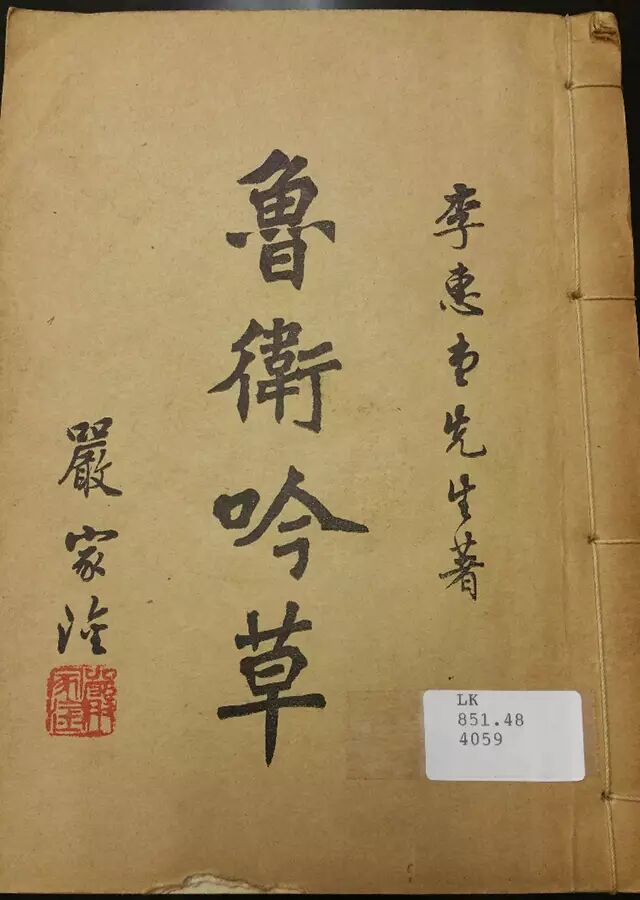 李惠堂先生著
魯衛吟草
嚴家淦
LK
851.48
4059